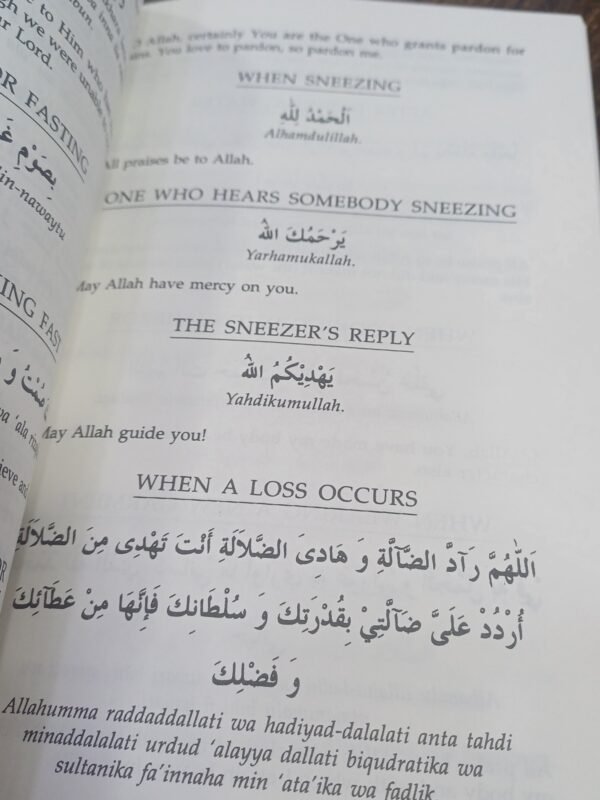 to Him who
we were unable
Lord.
FASTING
بِصَوْمِ
in-nawaytu
FAST
‘ala
and
Allah, certainly You are the One who grants pardon for
You love to pardon, so pardon me.
WHEN SNEEZING
اَلْحَمْدُ لِلّٰهِ
Alhamdulillah.
All praises be to Allah.
ONE WHO HEARS SOMEBODY SNEEZING
يَرْحَمُكَ اللّٰهُ
Yarhamukallah.
May Allah have mercy on you.
THE SNEEZER’S REPLY
يَهْدِيْكُمُ اللّٰهُ
Yahdikumullah.
May Allah guide you!
WHEN A LOSS OCCURS
اَللّٰهُمَّ رَآدَّ الضَّآلَّةِ وَ هَادِىَ الضَّلَالَةِ أَنْتَ تَهْدِى مِنَ الضَّلَالَةِ
أُرْدُدْ عَلَىَّ ضَآلَّتِيْ بِقُدْرَتِكَ وَ سُلْطَانِكَ فَإِنَّهَا مِنْ عَطَآئِكَ
وَ فَضْلِكَ
Allahumma raddaddallati wa hadiyad-dalalati anta tahdi
minaddalalati urdud ‘alayya dallati biqudratika wa
sultanika fa’innaha min ‘ata’ika wa fadlik